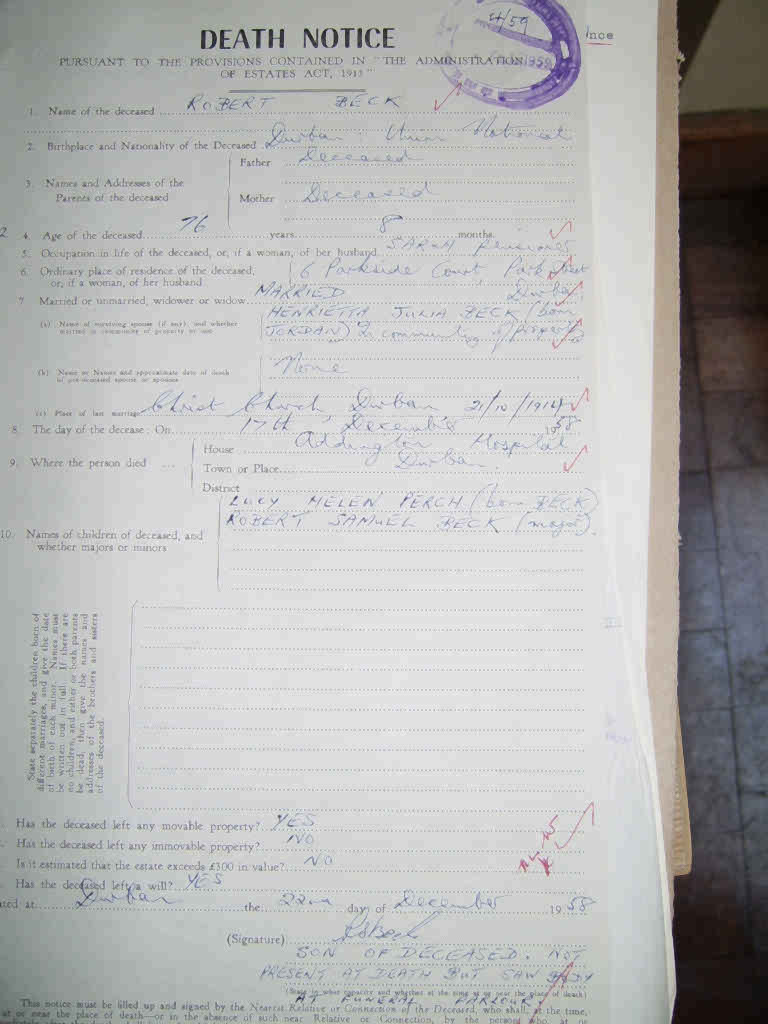 4/59
1959
nce
DEATH NOTICE
PURSUANT TO THE PROVISIONS CONTAINED IN "THE ADMINISTRATION
OF ESTATES ACT, 1913"
1. Name of the deceased ROBERT BECK
2. Birthplace and Nationality of the Deceased Durban Union National
3. Names and Addresses of the
Parents of the deceased
Father Deceased
Mother Deceased
4. Age of the deceased 76 years 8 months.
5. Occupation in life of the deceased, or, if a woman, of her husband SAR&H Pensioner
6. Ordinary place of residence of the deceased,
or, if a woman, of her husband
6 Parkside Court, Park Street
Durban
7 Married or unmarried, widower or widow MARRIED
(a) Name of surviving spouse (if any), and whether
married in community of property or not
HENRIETTA JULIA BECK (born
JORDAN) In community of property
(b) Name or Names and approximate date of death
of pre-deceased spouse or spouses
None
(c) Place of last marriage Christ Church Durban 21/10/1914
8. The day of the decease: On 17th December 1958
9. Where the person died ...
House Addington Hospital
Town or Place Durban.
District
10. Names of children of deceased, and
whether majors or minors
LUCY HELEN PERCH (born BECK)
ROBERT SAMUEL BECK (major).
State separately the children born of
different marriages, and give the date
of birth of each minor. Names must
be written out in full. If there are
no children, and either or both parents
be dead, then give the names and
addresses of the brothers and sisters
of the deceased.
Has the deceased left any movable property? YES
Has the deceased left any immovable property? NO
Is it estimated that the estate exceeds £300 in value? NO
Has the deceased left a will? YES
ated at Durban the 22nd day of December 1958
(Signature) RSBeck
SON OF DECEASED. NOT
PRESENT AT DEATH BUT SAW BODY
(State in what capacity and whether at the time at or near the place of death)
AT FUNERAL PARLOUR
This notice must be filled up and signed by the Nearest Relative or Connection of the Deceased, who shall, at the time,
at or near the place of death—or in the absence of such near Relative or Connection, by the person who